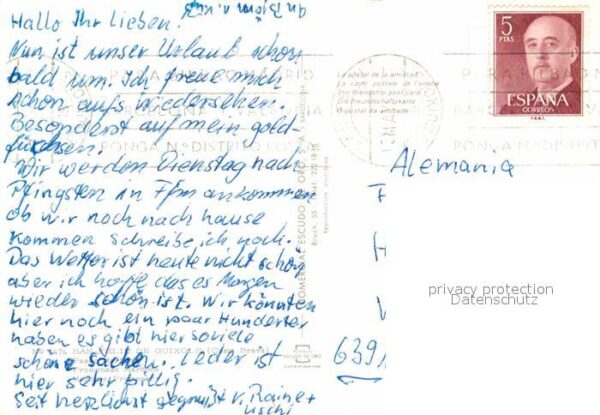 Hallo Ihr Lieben!
Nun ist unser Urlaub schon
bald um. Ich freue mich
schon aufs wiedersehen.
Besonderst auf mein gold-
füchsen!
Wir werden Dienstag nach
Pfingsten in Ffm ankommen
ob wir noch nach hause
kommen schreibe ich noch.
Das Wetter ist heute nicht schön
aber ich hoffe das es Morgen
wieder schön ist. Wir könnten
hier noch ein paar Hunderter
haben es gibt hier soviele
schöne Sachen. Leder ist
hier sehr billig.
Seit herzlichst gegrüßt v. Rainer +
Uschi
SAN FELIU DE GUIXOLS
COMERCIAL ESCUDO DE ORO, S.
Bruch, 55
La postal de la amistad
La carte postale de l'amitié
The friendship postcard
Die Freundschaftskarte
O postal da amizade
PONGA N.º DISTRITO POSTAL
5
PTAS
ESPAÑA
CORREOS
Alemania
639
privacy protection
Datenschutz